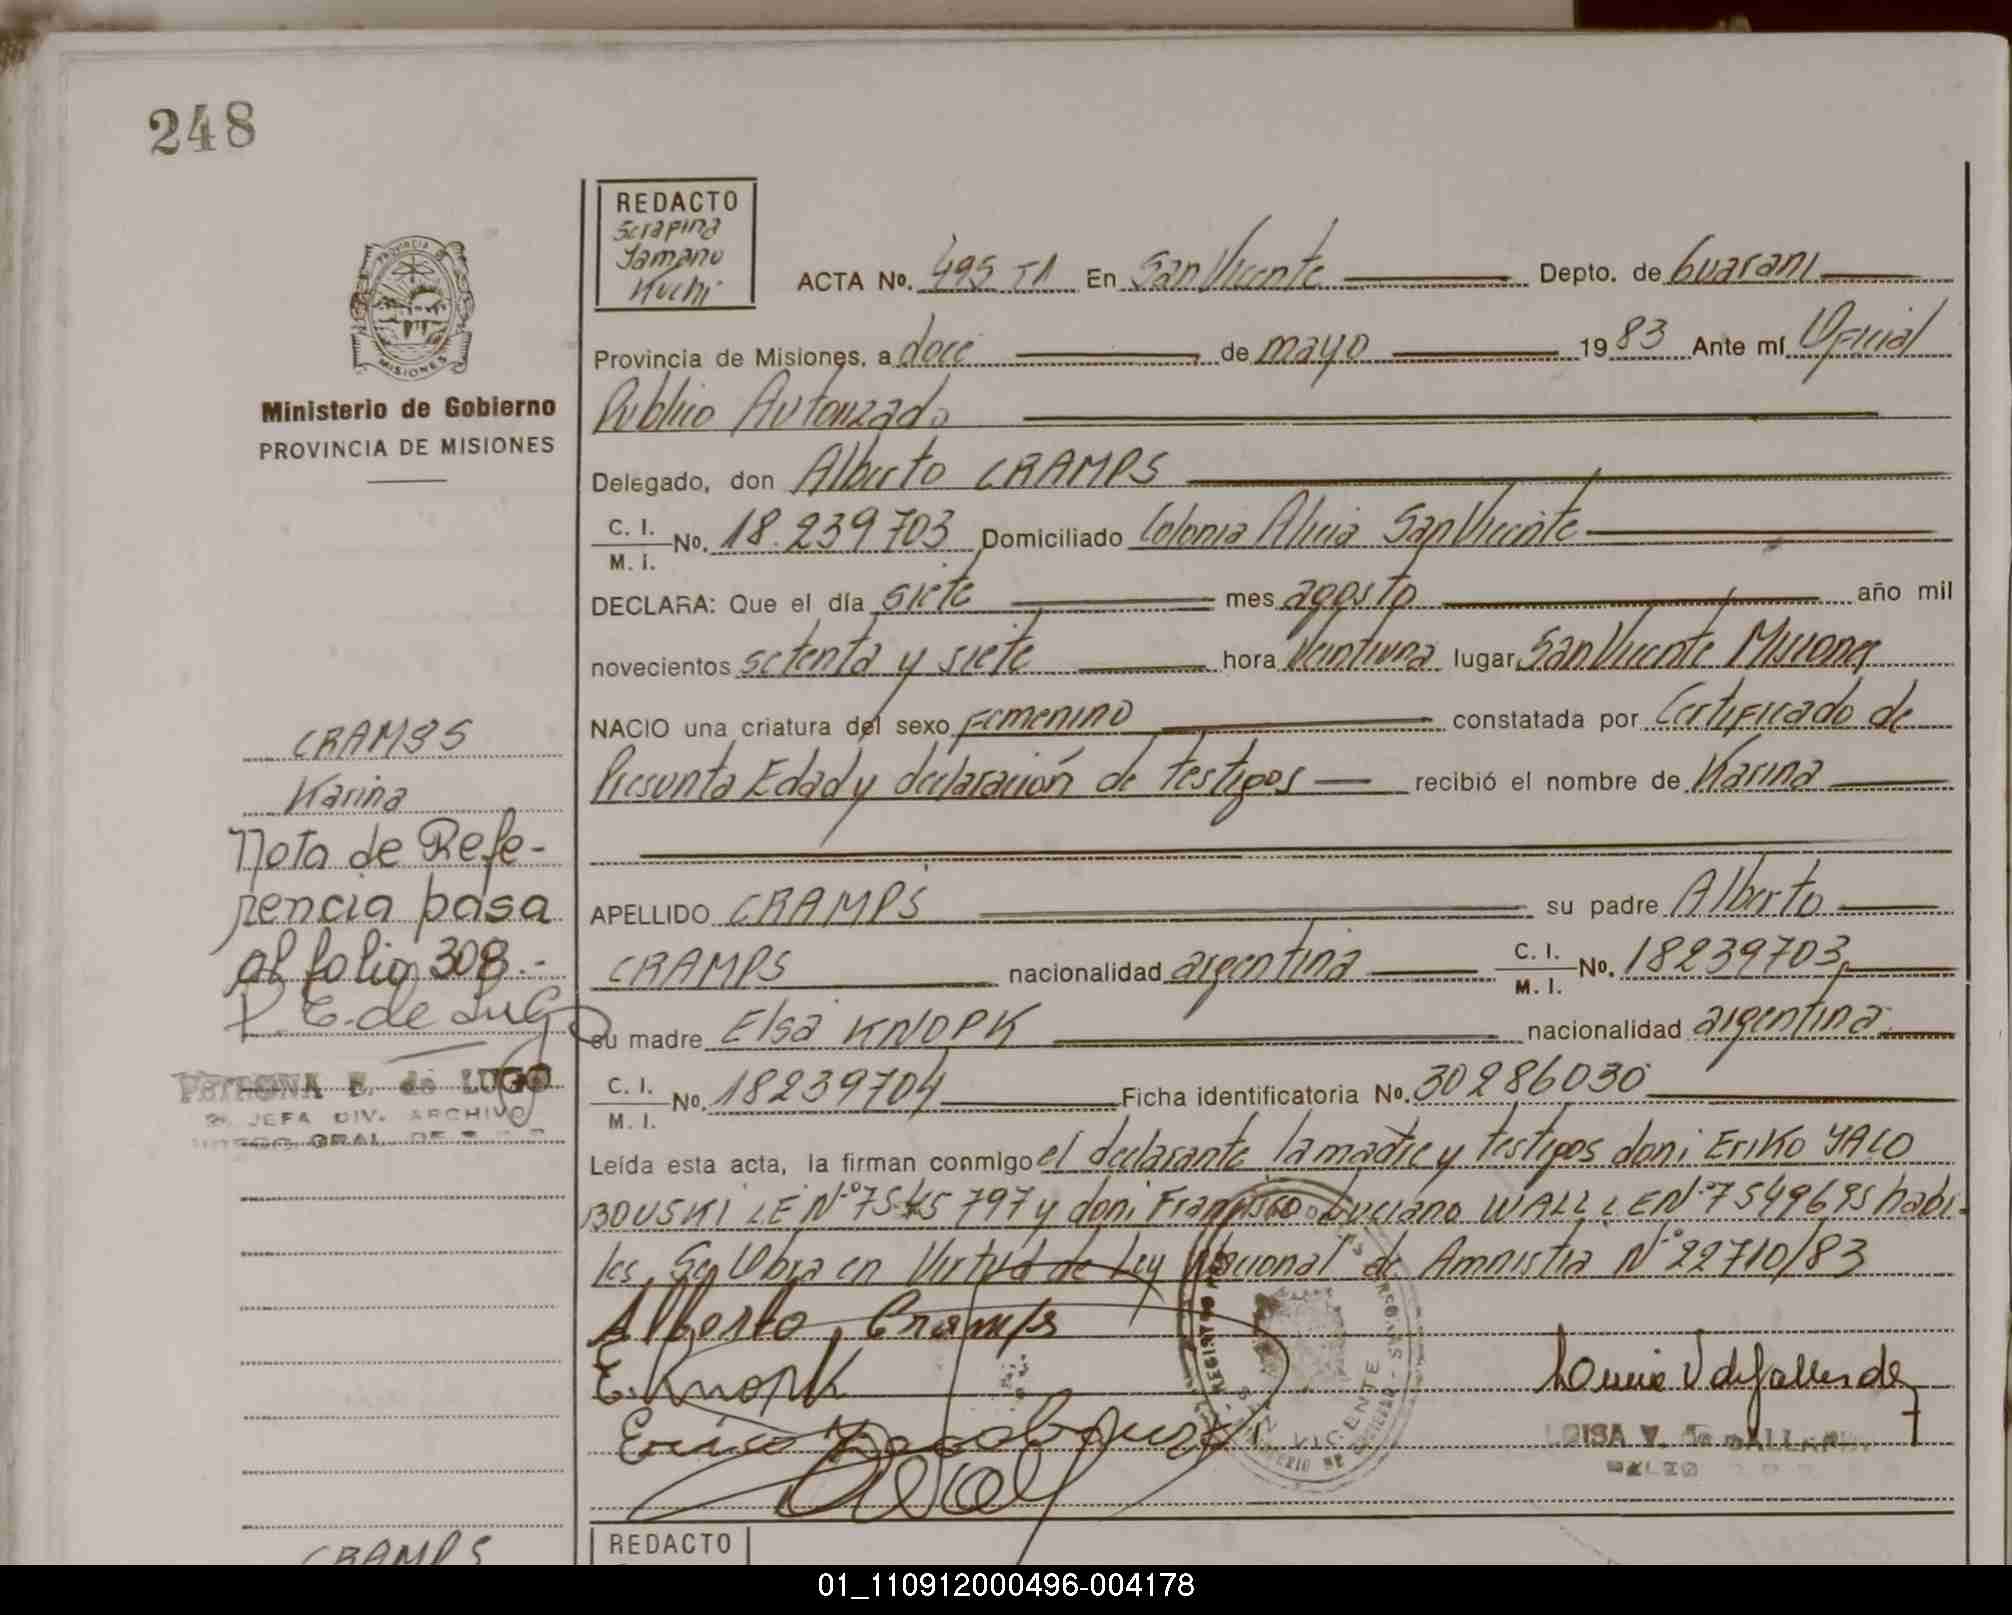 248
REDACTO
Serapina
Yamano
Kuchi
ACTA No. 495 T1 En San Vicente Depto. de Guarani
Provincia de Misiones, a doce de mayo 1983 Ante mí Oficial
Publico Autorizado
PROVINCIA DE
MISIONES
Ministerio de Gobierno
PROVINCIA DE MISIONES
Delegado, don Alberto CRAMPS
C. I.
M. I. No. 18.239703 Domiciliado Colonia Alicia San Vicente
DECLARA: Que el día siete mes agosto año mil
novecientos setenta y siete hora veintiuna lugar San Vicente Misiones
NACIO una criatura del sexo femenino constatada por Certificado de
Presunta Edad y declaración de testigos recibió el nombre de Karina
APELLIDO CRAMPS su padre Alberto
CRAMPS nacionalidad argentina C. I.
M. I. No. 18239703
su madre Elsa KNOPK nacionalidad argentina
C. I.
M. I. No. 18239704 Ficha identificatoria No. 30286030
Leída esta acta, la firman conmigo el declarante la madre y testigos don: Eriko YACO
BOUSKI LE Nº 7545797 y don: Francisco Luciano WALL LE Nº 7549695 habi-
les. Se Obra en Virtud de Ley Nacional de Amnistia Nº 22710/83
Alberto Cramps
E. Knopk
SAN VICENTE
CRAMPS
Karina
Nota de Refe-
rencia pasa
al folio 308.-
P. E. de Lugo
PETRONA E. de LUGO
JEFA DIV. ARCHIVO
REDACTO
CRAMPS
01_110912000496-004178